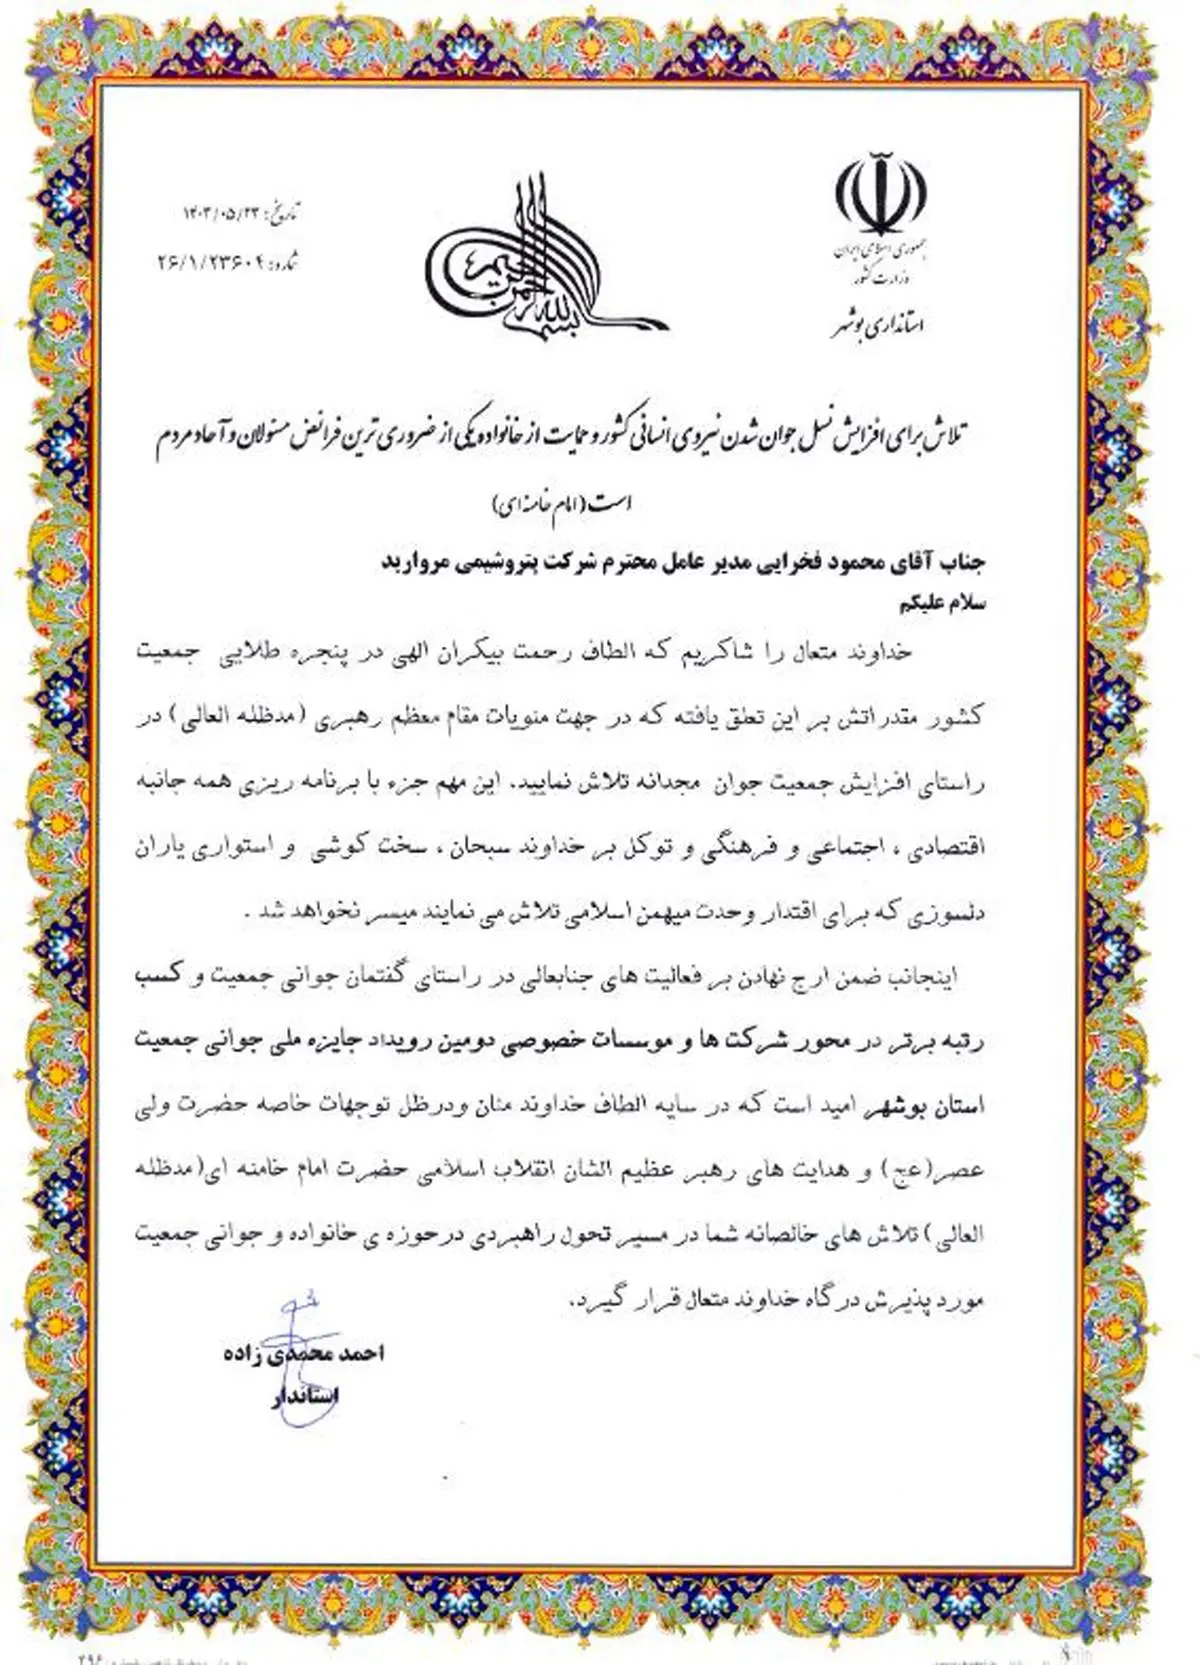 جمهوری اسلامی ایران
وزارت کشور
استانداری بوشهر
بسم الله الرحمن الرحیم
تاریخ: ۱۴۰۳/۰۵/۲۳
شماره: ۲۶/۱/۲۳۶۰۴
تلاش برای افزایش نسل جوان شدن نیروی انسانی کشور و حمایت از خانواده یکی از ضروری ترین فرائض مسئولان و آحاد مردم
است (امام خامنه ای)
جناب آقای محمود فخرایی مدیر عامل محترم شرکت پتروشیمی مروارید
سلام علیکم
خداوند متعال را شاکریم که الطاف رحمت بیکران الهی در پنجره طلایی جمعیت
کشور مقدراتش بر این تعلق یافته که در جهت منویات مقام معظم رهبری (مدظله العالی) در
راستای افزایش جمعیت جوان مجدانه تلاش نمایید. این مهم جزء با برنامه ریزی همه جانبه
اقتصادی ، اجتماعی و فرهنگی و توکل بر خداوند سبحان ، سخت کوشی و استواری یاران
دلسوزی که برای اقتدار وحدت میهمن اسلامی تلاش می نمایند میسر نخواهد شد .
اینجانب ضمن ارج نهادن بر فعالیت های جنابعالی در راستای گفتمان جوانی جمعیت و کسب
رتبه برتر در محور شرکت ها و موسسات خصوصی دومین رویداد جایزه ملی جوانی جمعیت
استان بوشهر امید است که در سایه الطاف خداوند منان ودرظل توجهات خاصه حضرت ولی
عصر(عج) و هدایت های رهبر عظیم الشان انقلاب اسلامی حضرت امام خامنه ای(مدظله
العالی) تلاش های خالصانه شما در مسیر تحول راهبردی درحوزه ی خانواده و جوانی جمعیت
مورد پذیرش درگاه خداوند متعال قرار گیرد.
احمد محمدی زاده
استاندار